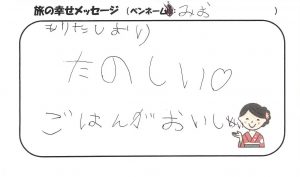 旅の幸せメッセージ（ペンネーム：みお　）
もりたしおり
たのしい♡
ごはんがおいしい